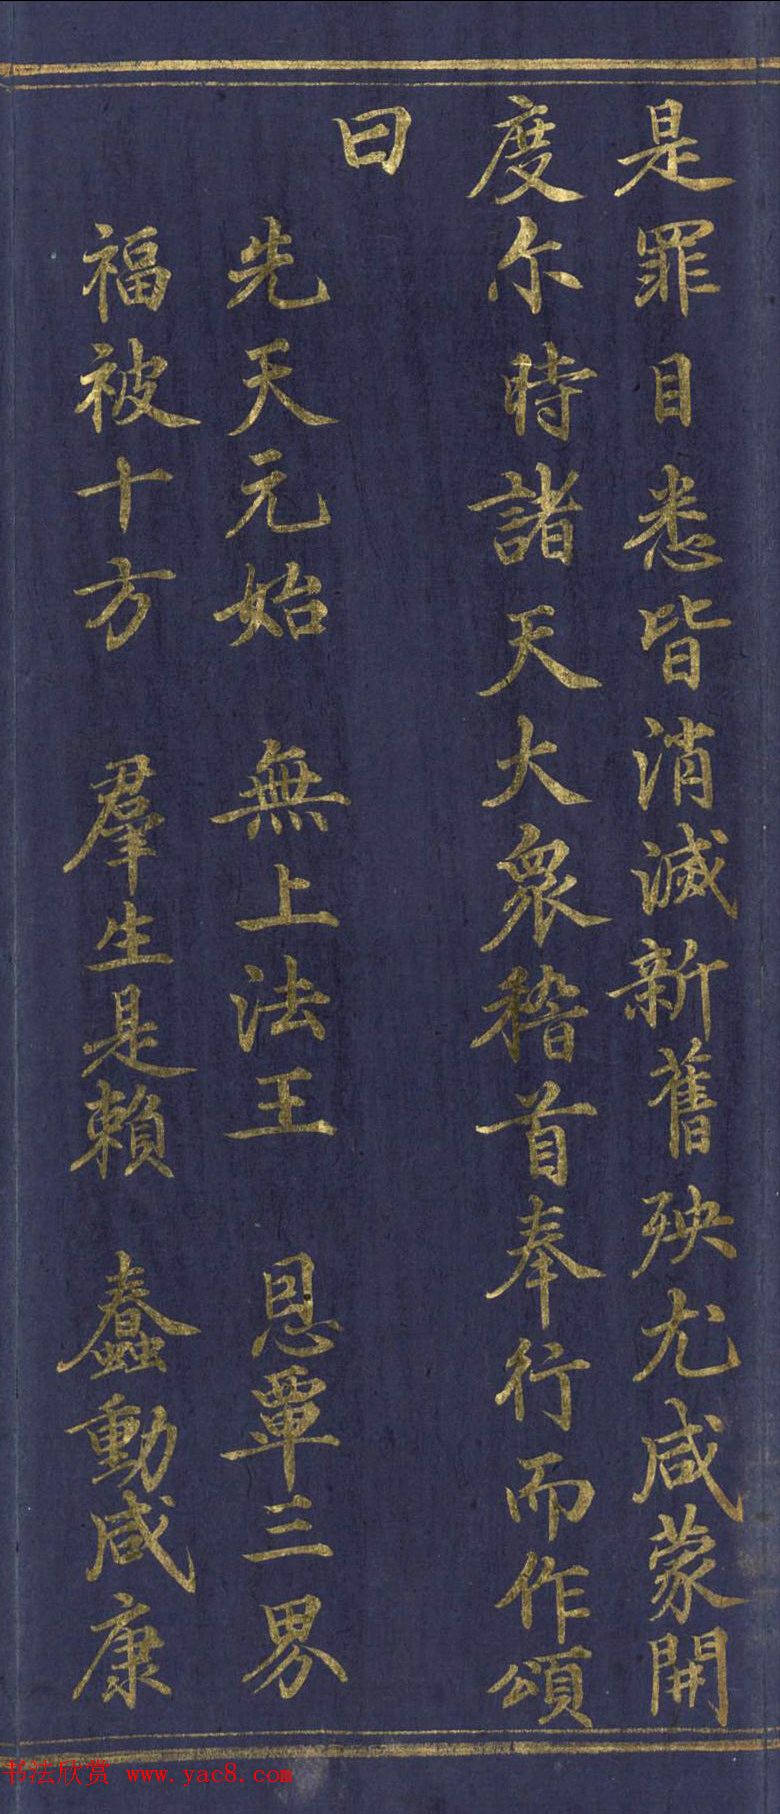 是罪目悉皆消滅新舊殃尤咸蒙開
度尔時諸天大眾稽首奉行而作頌
曰
先天元始 無上法王 恩覃三界
福被十方 羣生是賴 蠢動咸康
书法欣赏 www.yac8.com